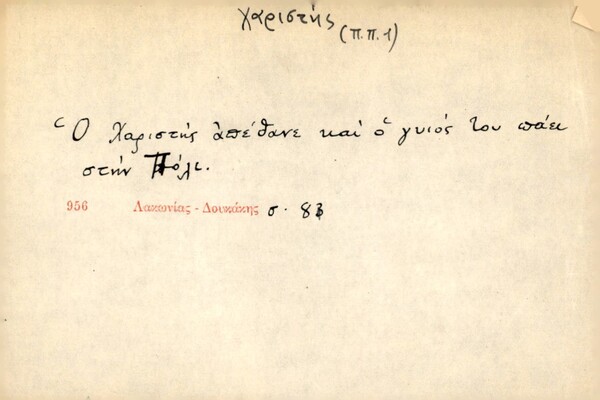 χαριστής
(π.π.1)
Ὁ Χαριστής ἀπέθανε καί ὁ γυιός του πάει
στήν Πόλι.
956 Λακωνίας - Δουκάκης σ. 83